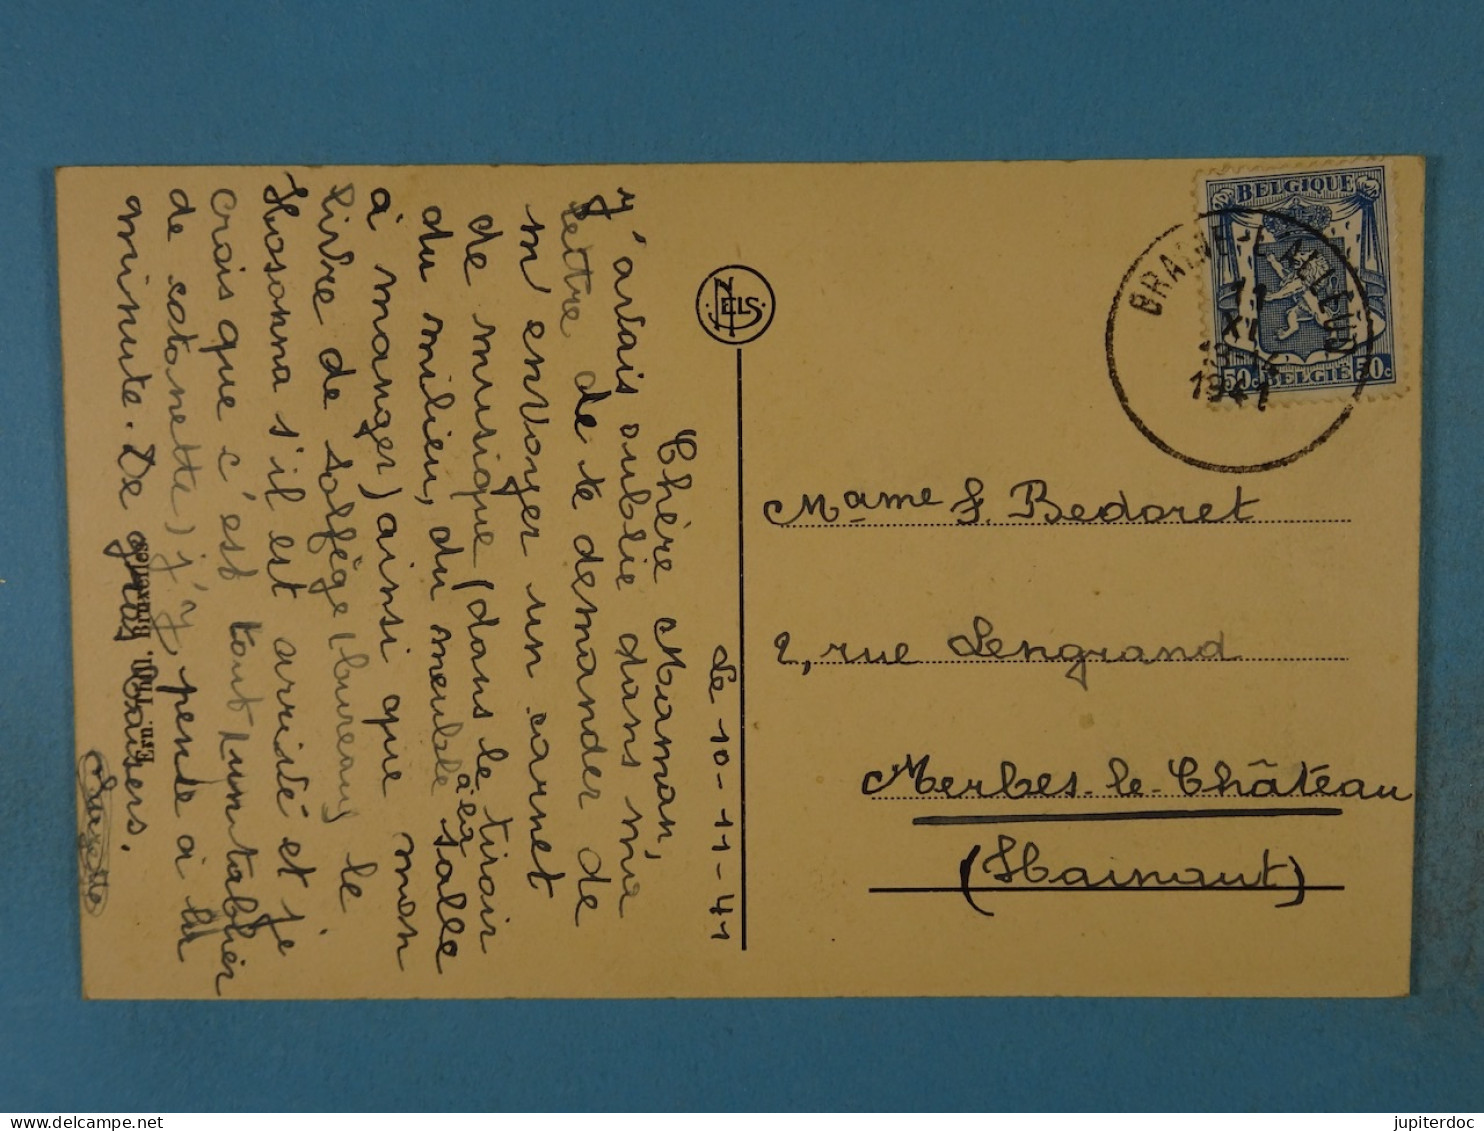 Le 10-11-41
Chère Maman,
J'avais oublié dans ma
lettre de te demander de
m'envoyer un carnet
de musique (dans le tiroir
du milieu, du meuble à la salle
à manger) ainsi que mon
livre de solfège (bureau) le
Hosanna s'il est arrivé et je
crois que c'est tout, un tablier
de cotonette) j'y pense à la
minute. De gros baisers.
Ern. Thill, Bruxelles
NELS
BELGIQUE
50c BELGIË 50c
BRAINE-L'ALLEUD
11
XI
1941
Mame J. Bedoret
2, rue Lengrand
Merbes-le-Château
(Hainaut)
jupiterdoc